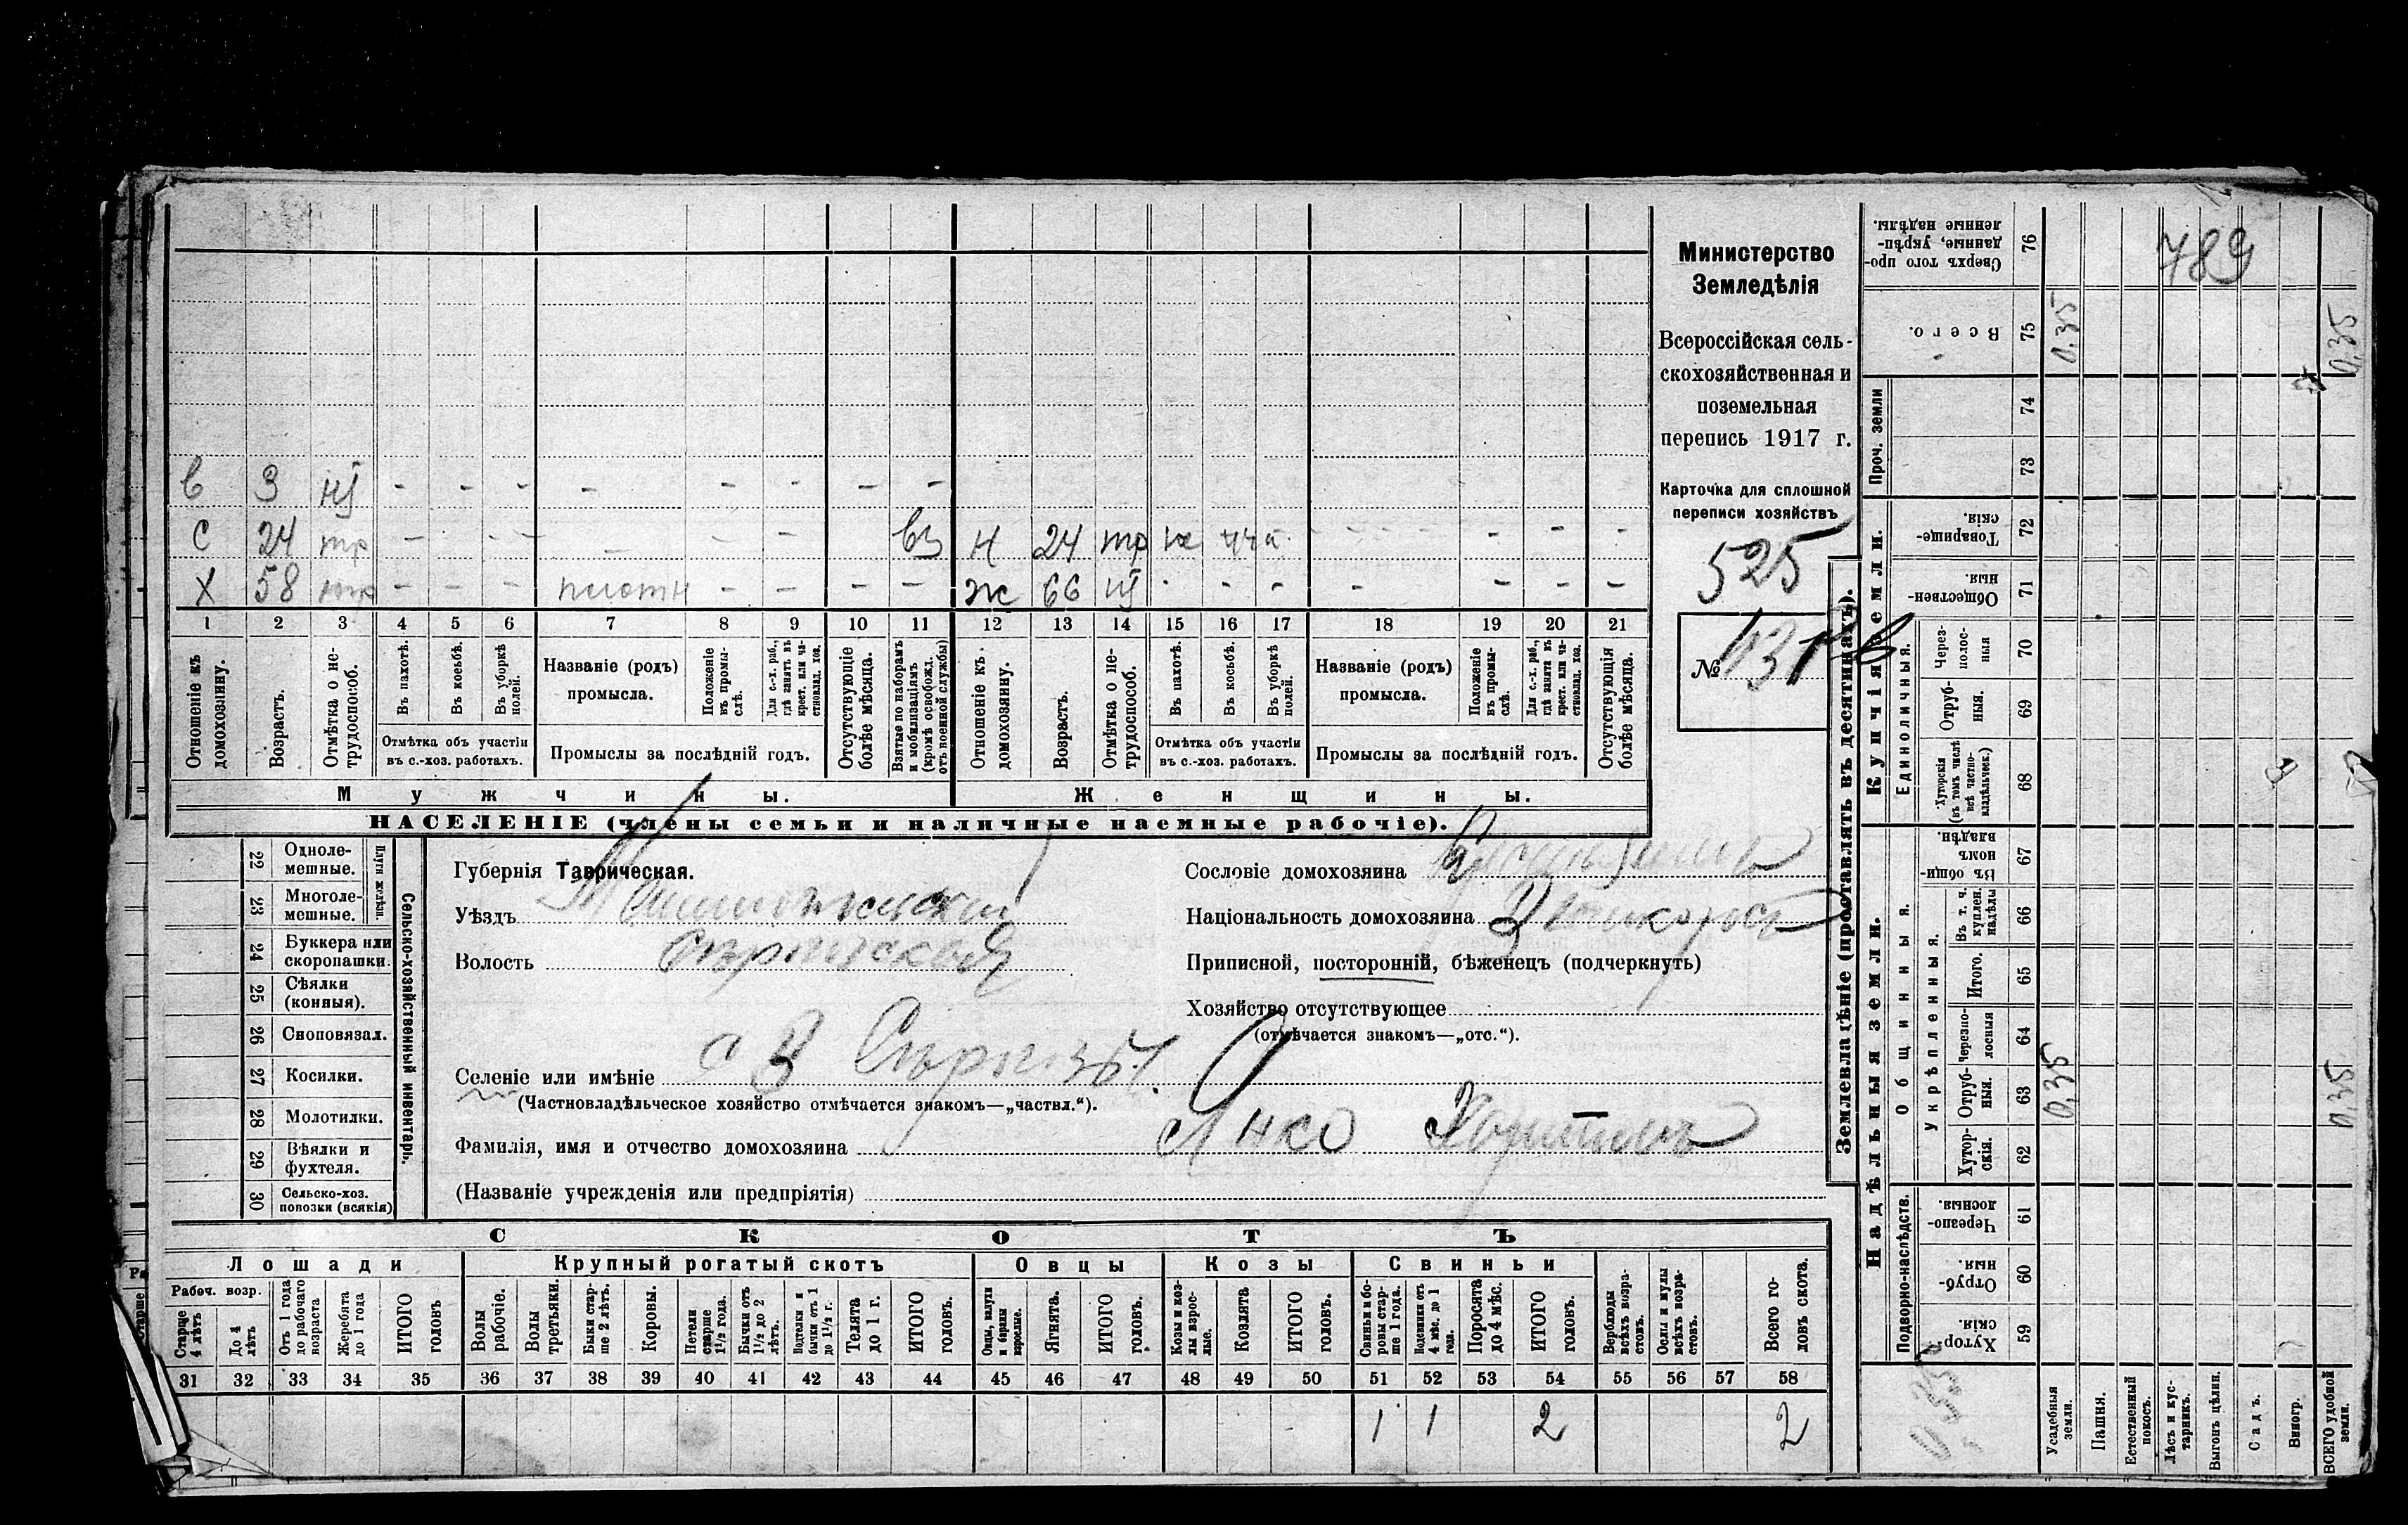 в 3 нт - - - - - - - -
с 24 тр - - - - - - вз н 24 тр - - -
х 58 тр - - - плотн - - - - ж 66 нт - - - - - - -
1 2 3 4 5 6 7 8 9 10 11 12 13 14 15 16 17 18 19 20 21
Отношеніе къ домохозяину.
Возрастъ.
Отмѣтка о нетрудоспособ.
Въ пахотѣ.
Въ косьбѣ.
Въ уборкѣ полей.
Отмѣтка объ участіи въ с.-хоз. работахъ.
Названіе (родъ) промысла.
Положеніе въ промыслѣ.
Для с.-х. раб., гдѣ занятъ въ крест. или частновлад. хоз.
Промыслы за послѣдній годъ.
Отсутствующіе болѣе мѣсяца.
Взятые по наборамъ и мобилизаціямъ (кромѣ освобожд. отъ военной службы)
Отношеніе къ домохозяину.
Возрастъ.
Отмѣтка о нетрудоспособ.
Въ пахотѣ.
Въ косьбѣ.
Въ уборкѣ полей.
Отмѣтка объ участіи въ с.-хоз. работахъ.
Названіе (родъ) промысла.
Положеніе въ промыслѣ.
Для с.-х. раб., гдѣ занята въ крест. или частновлад. хоз.
Промыслы за послѣдній годъ.
Отсутствующія болѣе мѣсяца.
Мужчины.
Женщины.
НАСЕЛЕНІЕ (члены семьи и наличные наемные рабочіе).
Министерство
Земледѣлія
Всероссійская сель-
скохозяйственная и
поземельная
перепись 1917 г.
Карточка для сплошной
переписи хозяйствъ
525
№
22 Однолемешные.
23 Многолемешные.
Плуги желѣзн.
24 Буккера или скоропашки.
25 Сѣялки (конныя).
26 Сноповязал.
27 Косилки.
28 Молотилки.
29 Вѣялки и фухтеля.
30 Сельско-хоз. повозки (всякія)
Сельско-хозяйственный инвентарь.
Губернія Таврическая.
Уѣздъ
Волость
Селеніе или имѣніе
(Частновладѣльческое хозяйство отмѣчается знакомъ—„частвл.“).
Фамилія, имя и отчество домохозяина
(Названіе учрежденія или предпріятія)
Сословіе домохозяина
Національность домохозяина
Приписной, посторонній, бѣженецъ (подчеркнуть)
Хозяйство отсутствующее
(отмѣчается знакомъ—„отс.“).
СКОТЪ
Лошади
Крупный рогатый скотъ
Овцы
Козы
Свиньи
Рабоч. возр.
Старше 4 лѣтъ
До 4 лѣтъ
Отъ 1 года до рабочаго возраста
Жеребята до 1 года
ИТОГО головъ
Волы рабочіе.
Волы третьяки.
Быки старше 2 лѣтъ.
Коровы.
Нетели старше 1½ года.
Бычки отъ 1½ до 2 лѣтъ.
Подтелки и бычки отъ 1 до 1½ г.
Телята до 1 г.
ИТОГО головъ.
Овцы, валухи и бараны взрослые.
Ягнята.
ИТОГО головъ.
Козы и козлы взрослые.
Козлята
ИТОГО головъ.
Свиньи и боровы старше 1 года.
Подсвинки отъ 4 мѣс. до 1 года.
Поросята до 4 мѣс.
ИТОГО головъ.
Верблюды всѣхъ возрастовъ.
Ослы и мулы всѣхъ возрастовъ.
Всего головъ скота.
31 32 33 34 35 36 37 38 39 40 41 42 43 44 45 46 47 48 49 50 51 52 53 54 55 56 57 58
1 1 2 2
Землевладѣніе (проставлять въ десятинахъ).
Надѣльныя земли.
Купчія земли.
Проч. земли
Подворно-наслѣдств.
Общинныя.
Укрѣпленныя.
Единоличныя.
Сверхъ того проданные, укрѣпленные надѣлы. 76
Всего. 75
74
73
Товарищескія. 72
Общественныя. 71
Черезполосныя 70
Отрубныя. 69
Хуторскія (въ томъ числѣ всѣ частновладѣльческ.) 68
Въ общинномъ владѣн. 67
Въ т. ч. куплен. надѣлы 66
Итого. 65
Черезполосныя 64
Отрубныя. 63
Хуторскія. 62
Черезполосныя. 61
Отрубныя. 60
Хуторскія. 59
789
0,35
0,35
0,35
0,35
Усадебныя земли.
Пашня.
Естественный покосъ.
Лѣсъ и кустарникъ.
Выгонъ цѣлин.
Садъ.
Виногр.
ВСЕГО удобной земли.